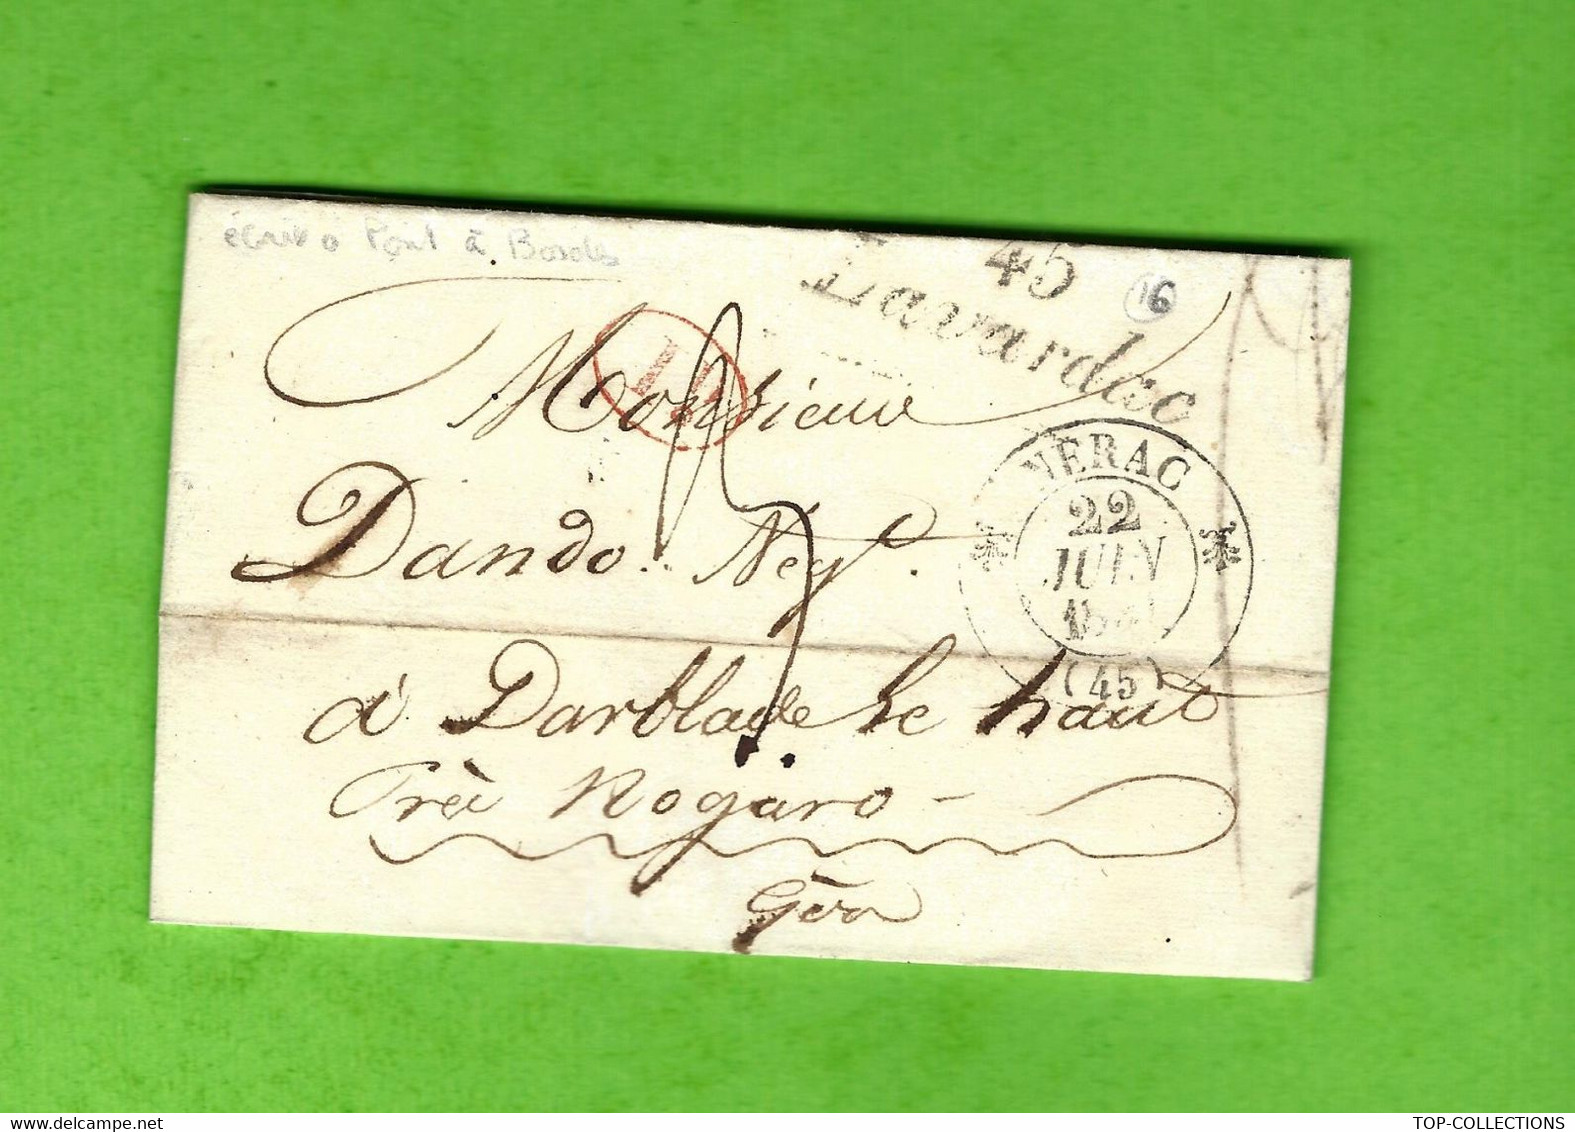 écrit à Pont à Bordes
45
Lavardac
16
Monsieur
Dando Negt.
à Darblade le haut
Près Nogaro -
Gers
NERAC
22
JUIN
(45)
TOP-COLLECTIONS